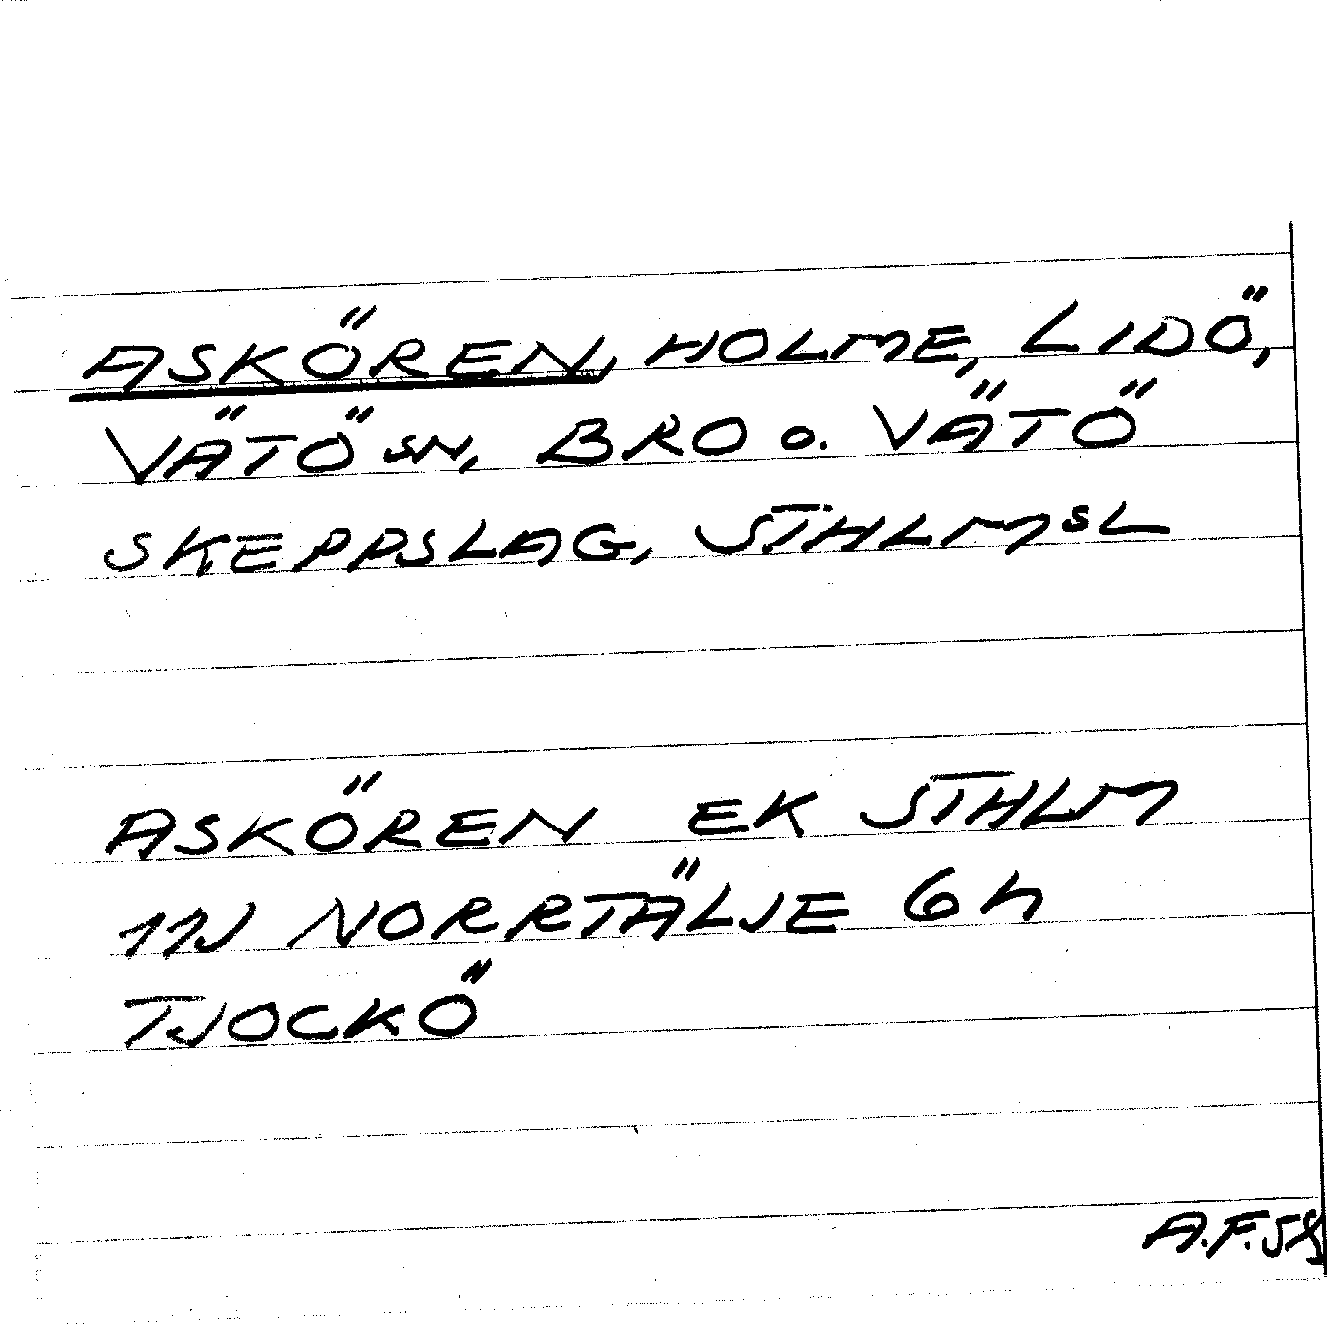 ASKÖREN, HOLME, LIDÖ,
VÄTÖ SN, BRO o. VÄTÖ
SKEPPSLAG, STHLMSL
ASKÖREN EK STHLM
11J NORRTÄLJE 6h
TJOCKÖ